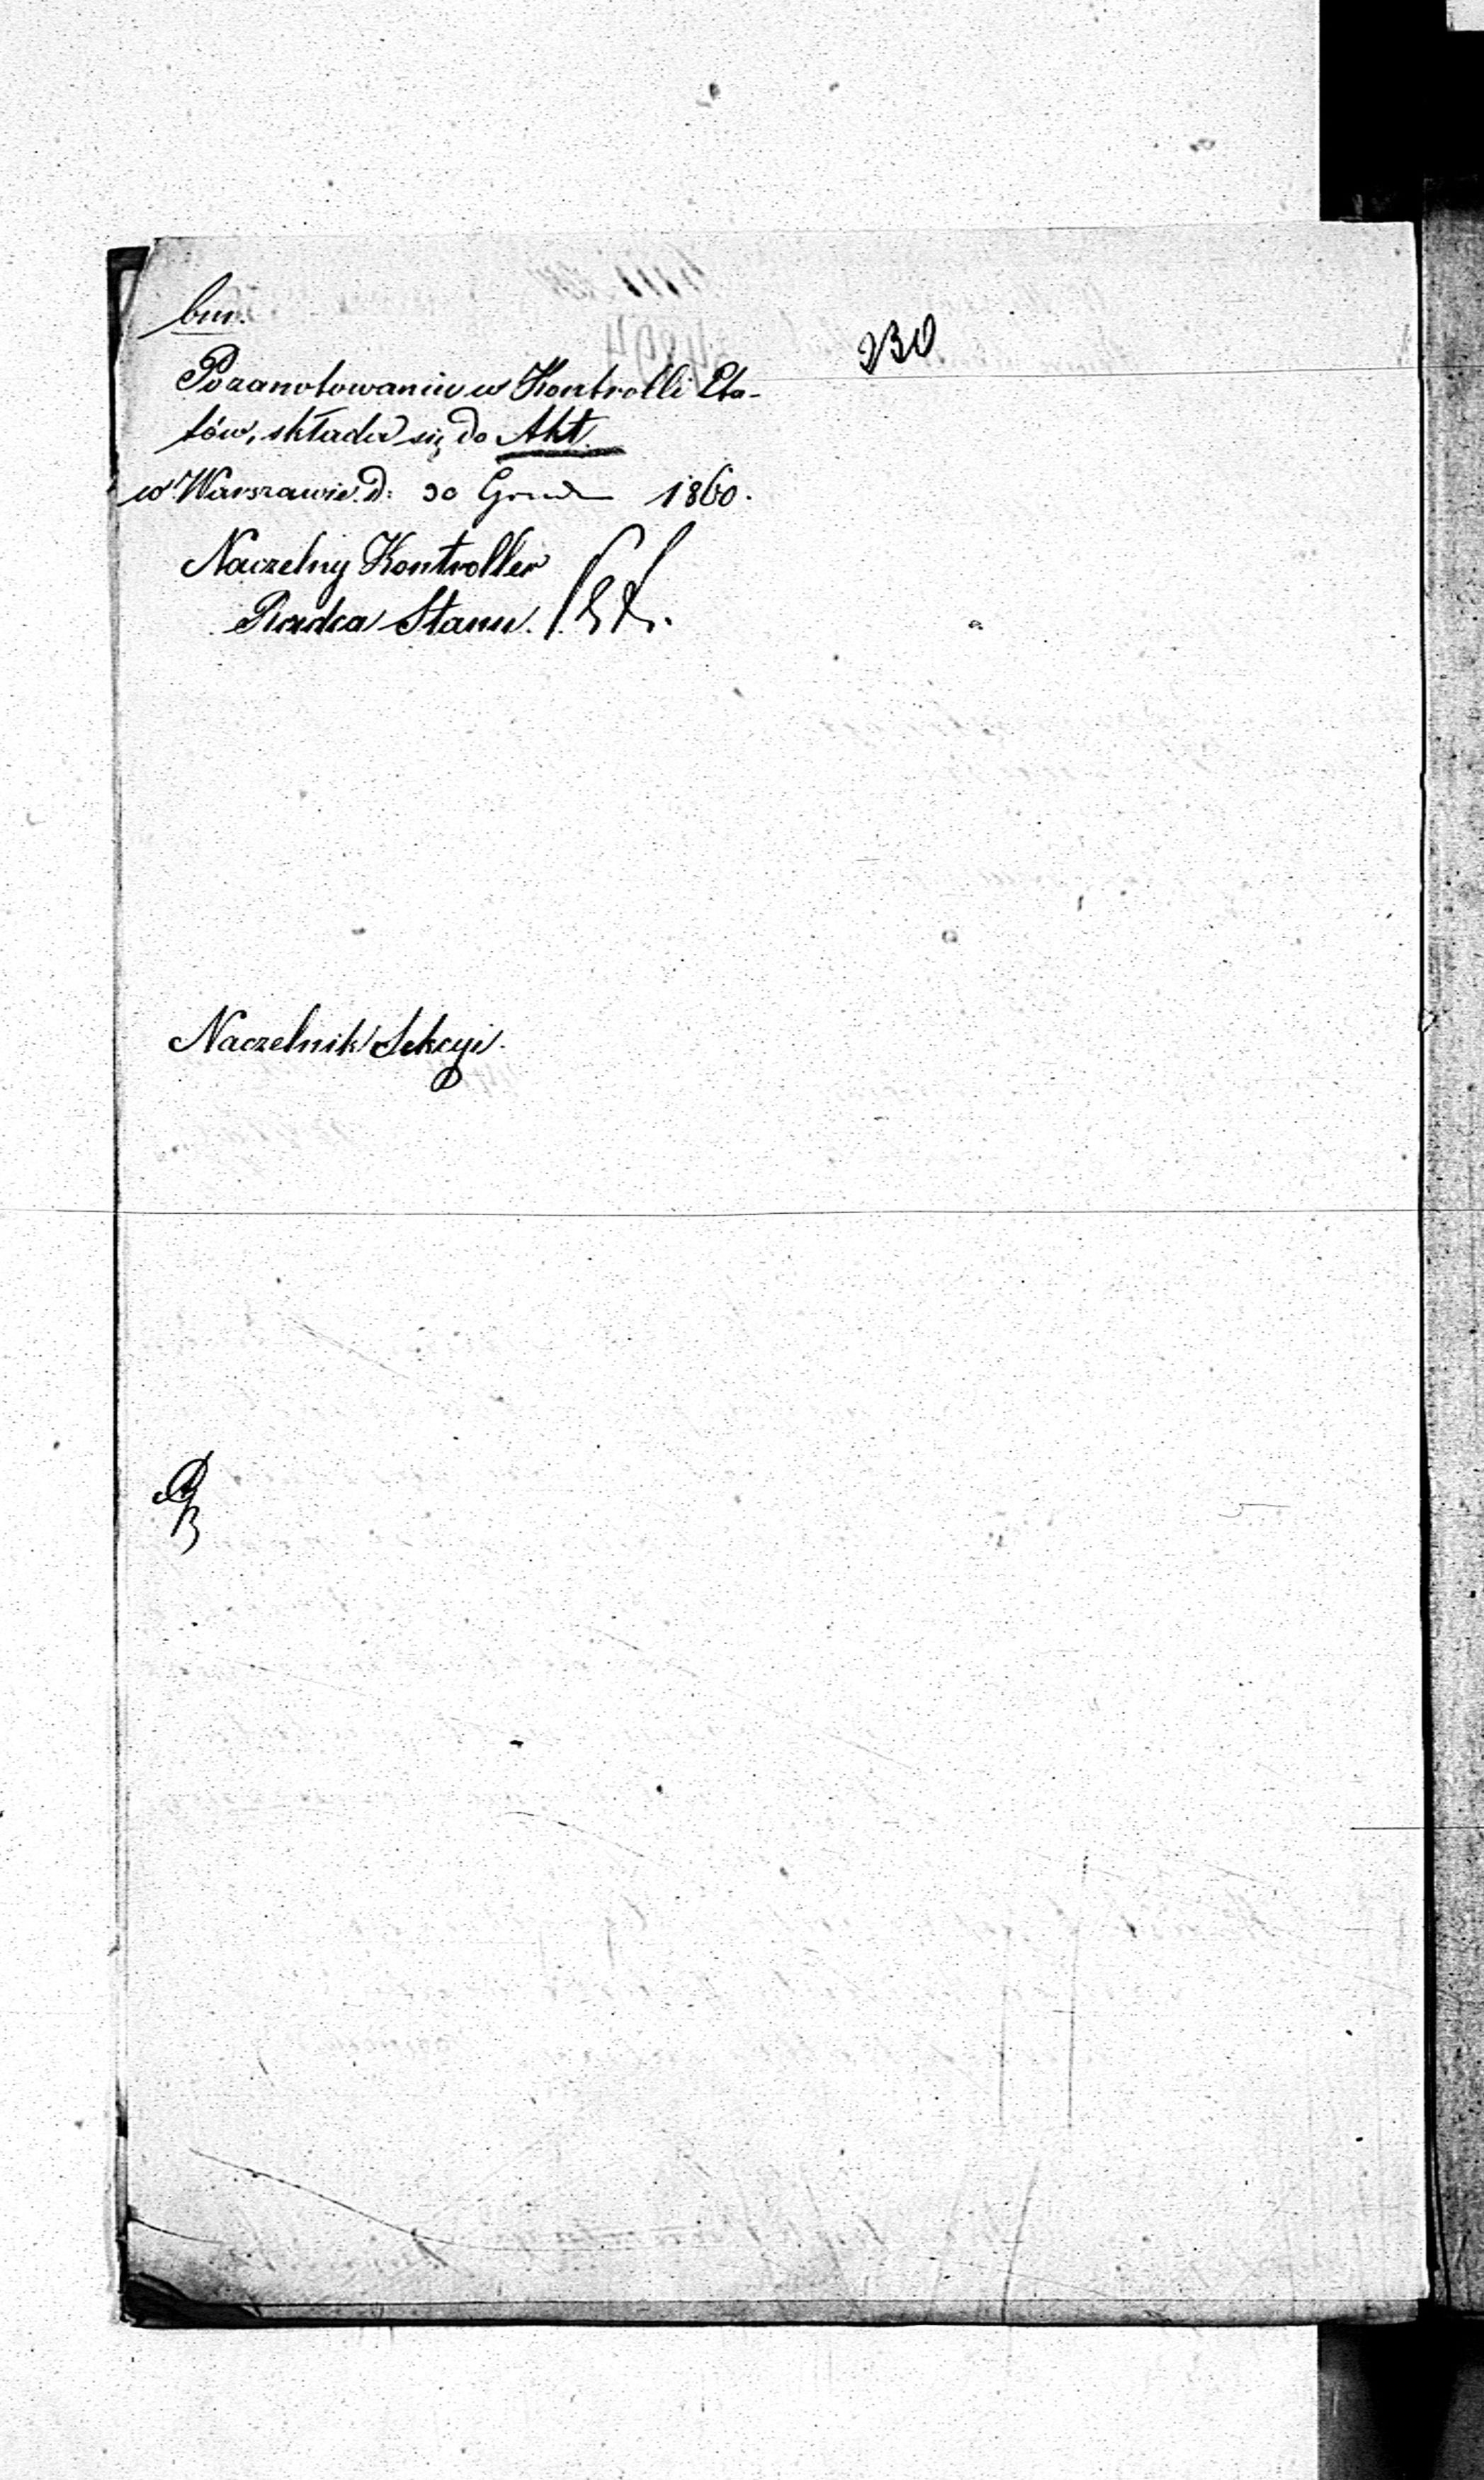 bm.
230
Po zanotowaniu w Kontrolli Eta-
tów, składa się do Akt.
w Warszawie d: 30 Grud 1860.
Naczelny Kontroller
Radca Stanu.
Naczelnik Sekcyi.